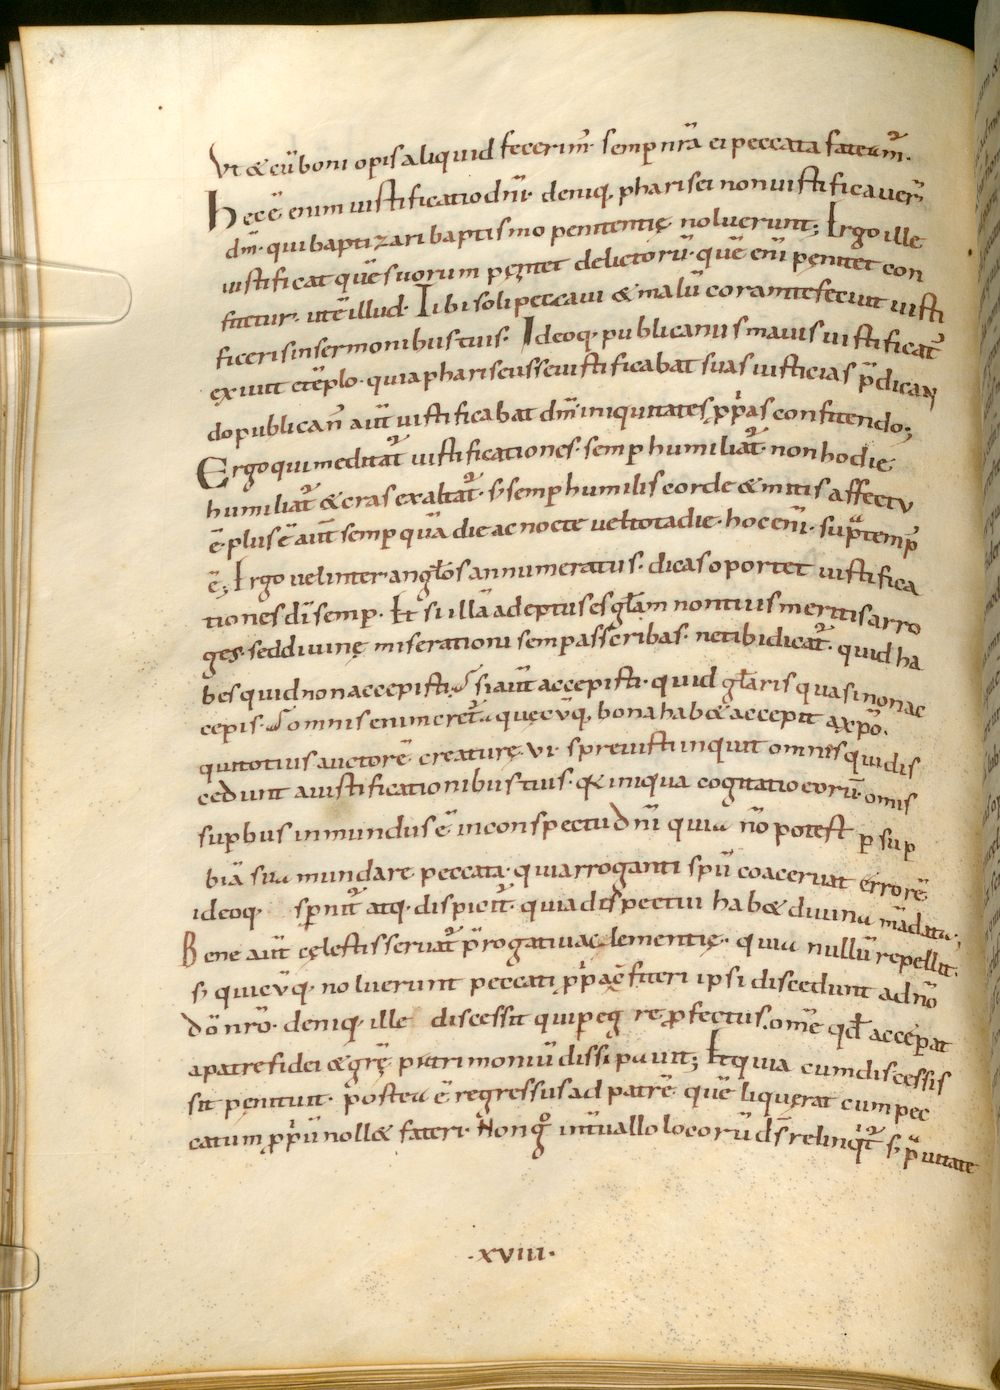 Vt & cū boni opis aliquid fecerim᷑. semp nr̄a ei peccata fateam᷑.
Hec ē enim iustificatio dn̄i. deniq, pharisei non iustificauer̄
dm̄. qui baptizari baptismo penitentię noluerunt; Ergo ille
iustificat quē suorum pęnitet delictorū. quē enī pęnitet con
fitetur. ut ē illud. Tibi soli peccaui & malū coram te feci ut iusti
ficeris in sermonibus tuis. Ideoq. publicanus maius iustificat᷑
exiuit e tēplo. quia phariseus se iustificabat suas iusticias p̄dican
do publican᷒ aūt iustificabat dm̄ iniquitates pp̄as confitendo;
Ergo qui meditat᷑ iustificationes. semp humiliat᷑. non hodie
humiliat᷑ & cras exaltat᷑. s; semp humilis corde & mitis affectu
ē. plus ē aūt semp quā die ac nocte uel tota die. hoc enī. sup̄ temp᷒
ē; Ergo uel inter anglos annumeratus. dicas oportet iustifica
tiones dī semp. Et si illā adeptus es glam non tuis meritis arro
ges. sed diuinę miserationi semp asscribas. ne tibi dicat᷑. quid ha
bes quid non accepisti? Si aūt accepisti. quid glaris quasi non ac
cepis.? omnis enim cret᷑a quęcūq, bona hab& accepit a xp̄o.
qui totius auctorē creaturę. Vi spreuisti inquit omnis qui dis
cedunt a iustificationibus tuis. q iniqua cogitatio eorū. omis
supbus inmundus ē in conspectu dn̄i quia n̄o potest p sup
biā sua mundare peccata. qui arroganti spū coaceruat errorē
ideoq. spnit᷑ atq. dispicit᷑. quia dispectui hab& diuina mādata;
Bene aūt cęlestis seruat᷑ p̄rogatiua clementię. quia nullū repellit.
s; quicūq. noluerunt peccati pp̄a cfiteri ipsi discedunt a dn̄o
dō nr̄o. deniq, ille discessit qui peg re pfectus. omē qd̄ accepat
a patre fidei & gr̄ę patrimoniū dissipauit; Et quia cum discessis
sit pęnituit. postea ē regressus ad patrē quē liquerat cum pec
catum pp̄iū noll& fateri. Non gͦ int̄uallo locorū ds̄ relinqt᷑ s; p̄uitate
.xviii.